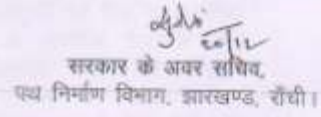 20/12
सरकार के अवर सचिव,
पथ निर्माण विभाग, झारखण्ड, राँची।